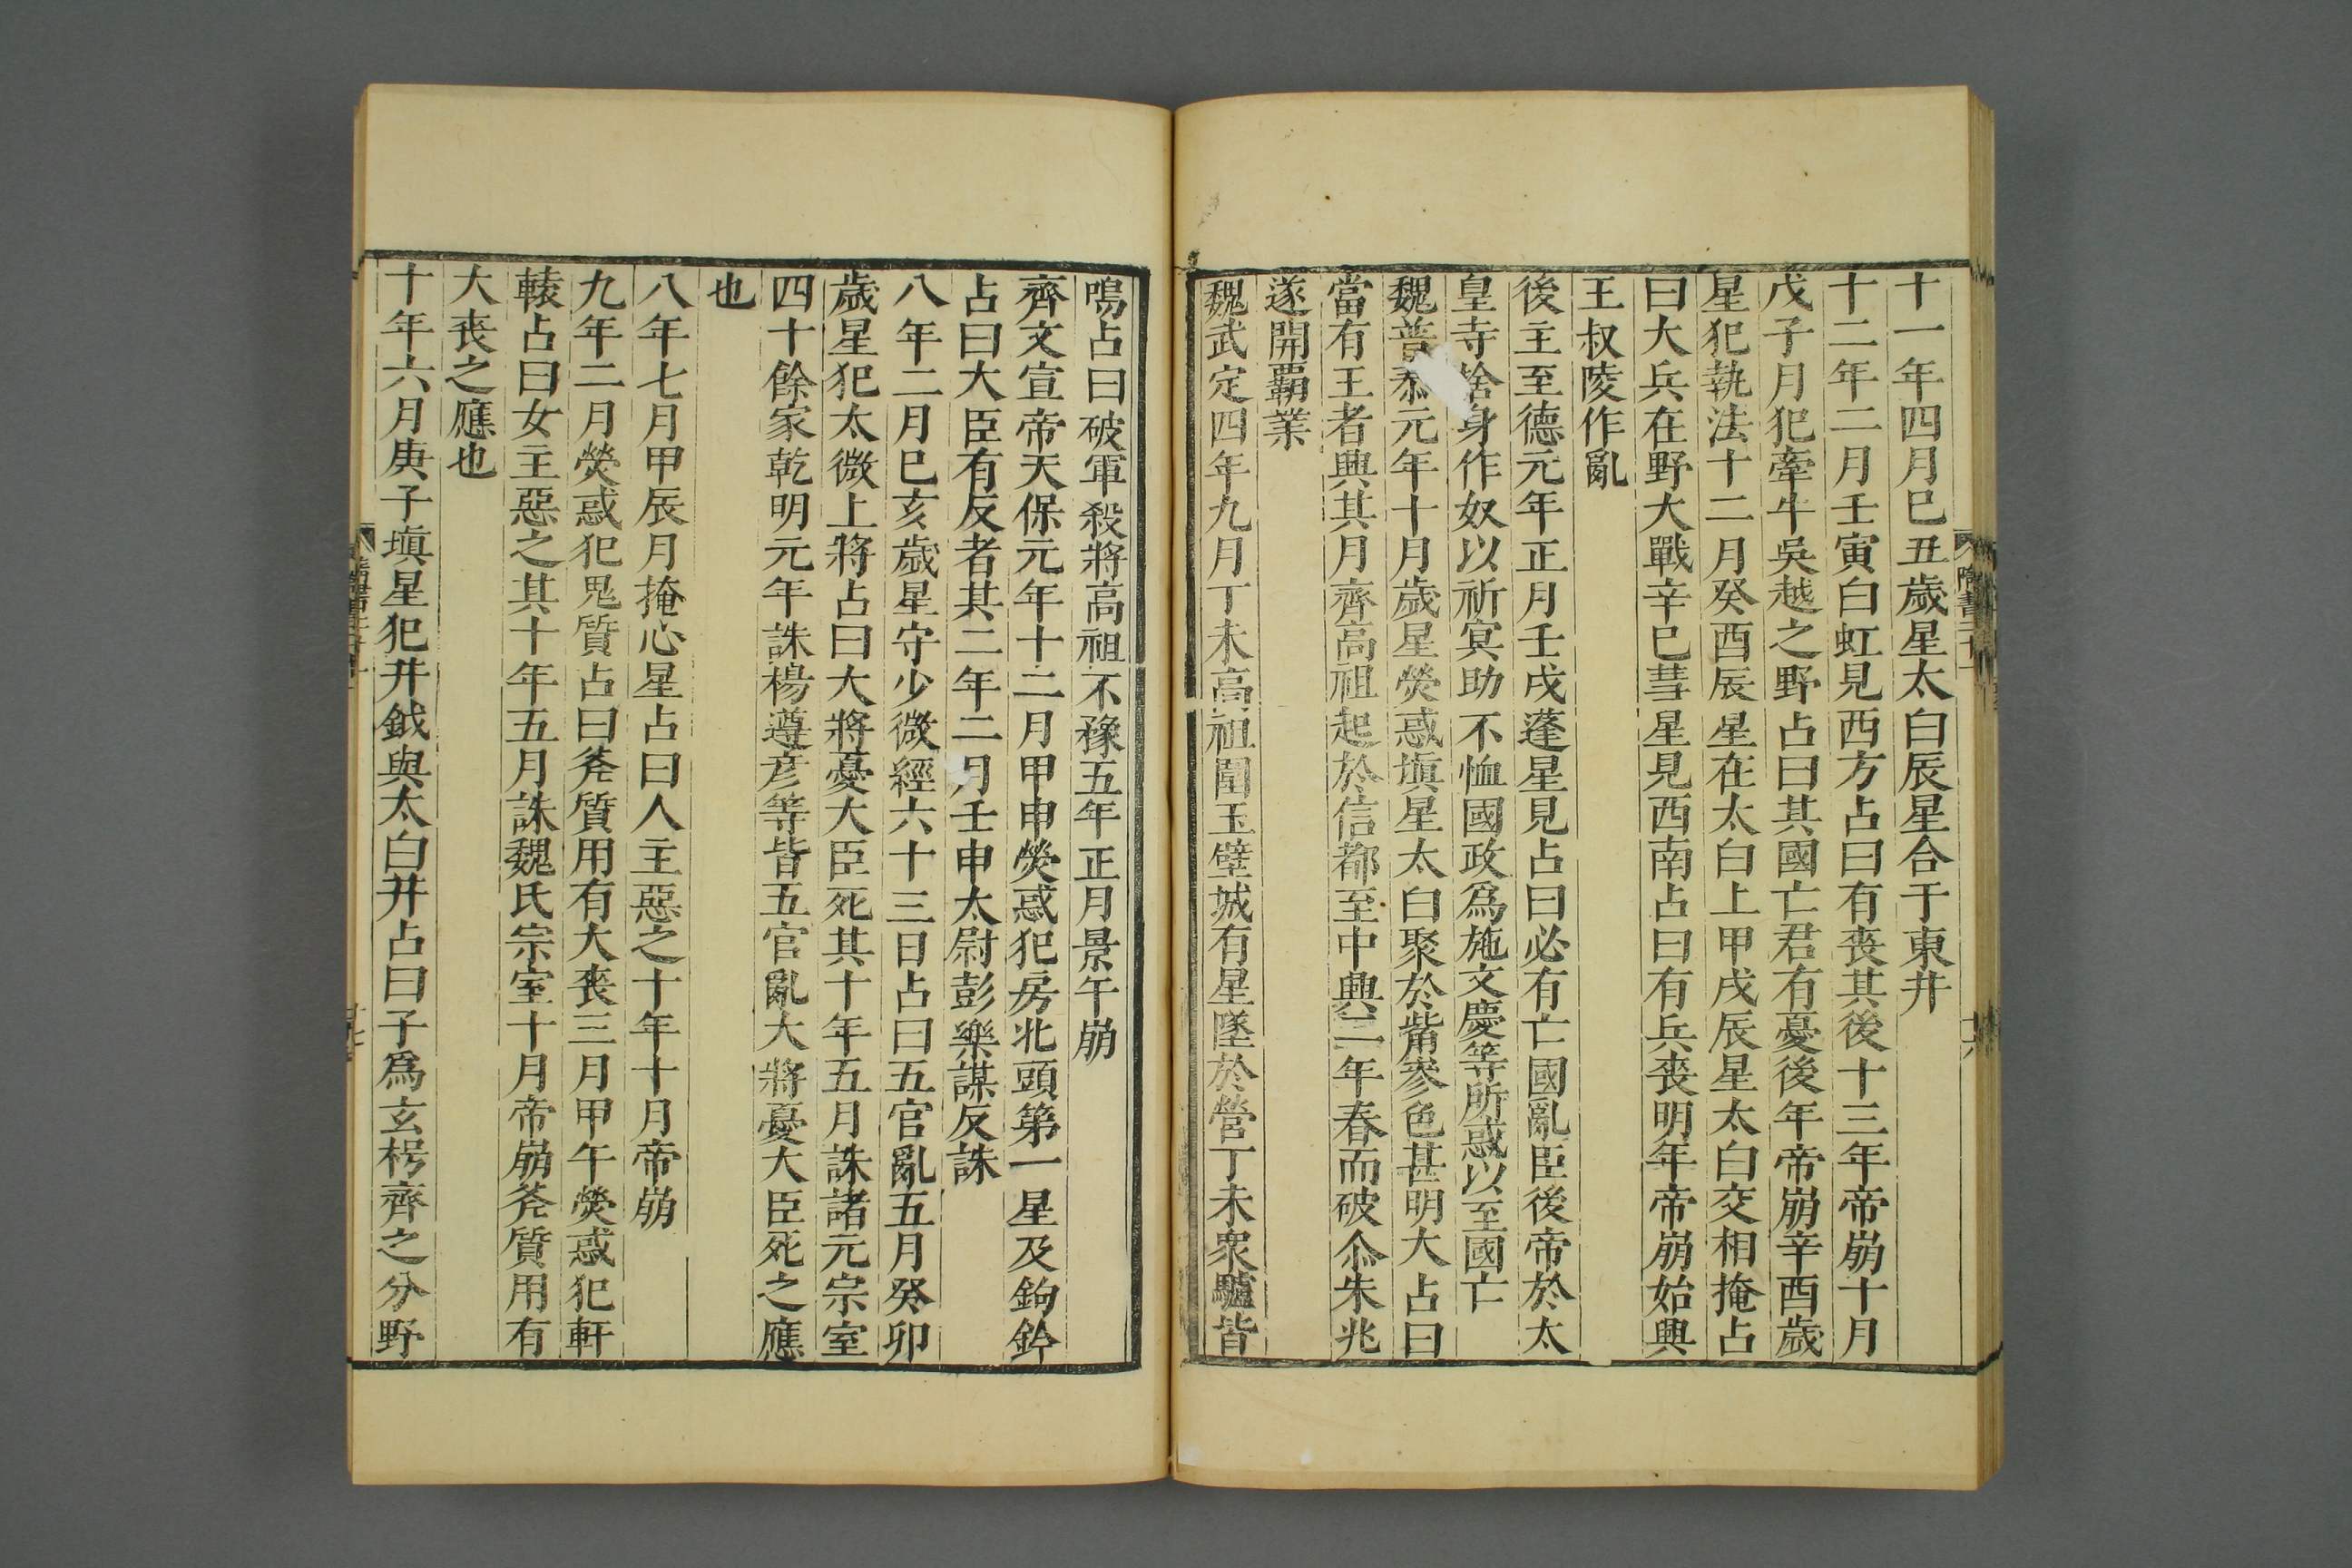 十一年四月巳丑歲星太白辰星合于東井
十二年二月壬寅白虹見西方占曰有喪其後十三年帝崩十月
戊子月犯牽牛吳越之野占曰其國亡君有憂後年帝崩辛酉歲
星犯執法十二月癸酉辰星在太白上甲戌辰星太白交相掩占
曰大兵在野大戰辛巳彗星見西南占曰有兵喪明年帝崩始興
王叔陵作亂
後主至德元年正月壬戌蓬星見占曰必有亡國亂臣後帝於太
皇寺捨身作奴以祈冥助不恤國政爲施文慶等所惑以至國亡
魏普泰元年十月歲星熒惑塡星太白聚於觜參色甚明大占曰
當有王者興其月齊高祖起於信都至中興二年春而破尒朱兆
遂開覇業
魏武定四年九月丁未高祖圍玉壁城有星墜於營丁未衆驢皆
鳴占曰破軍殺將高祖不豫五年正月景午崩
齊文宣帝天保元年十二月甲申熒惑犯房北頭第一星及鉤鈐
占曰大臣有反者其二年二月壬申太尉彭樂謀反誅
八年二月巳亥歲星守少微經六十三日占曰五官亂五月癸卯
歲星犯太微上將占曰大將憂大臣死其十年五月誅諸元宗室
四十餘家乾明元年誅楊遵彥等皆五官亂大將憂大臣死之應
也
八年七月甲辰月掩心星占曰人主惡之十年十月帝崩
九年二月熒惑犯鬼質占曰斧質用有大喪三月甲午熒惑犯軒
轅占曰女主惡之其十年五月誅魏氏宗室十月帝崩斧質用有
大喪之應也
十年六月庚子塡星犯井鉞與太白并占曰子爲玄枵齊之分野